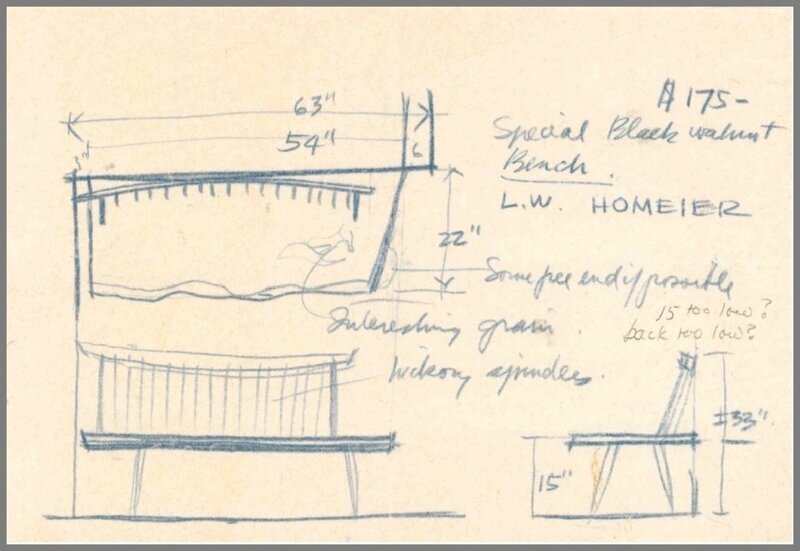 $175-
Special Black walnut
Bench.
L.W. HOMEIER
63"
54"
3"
6
22"
Some free end if possible
Interesting grain.
hickory spindles.
15 too low?
back too low?
± 33"
15"